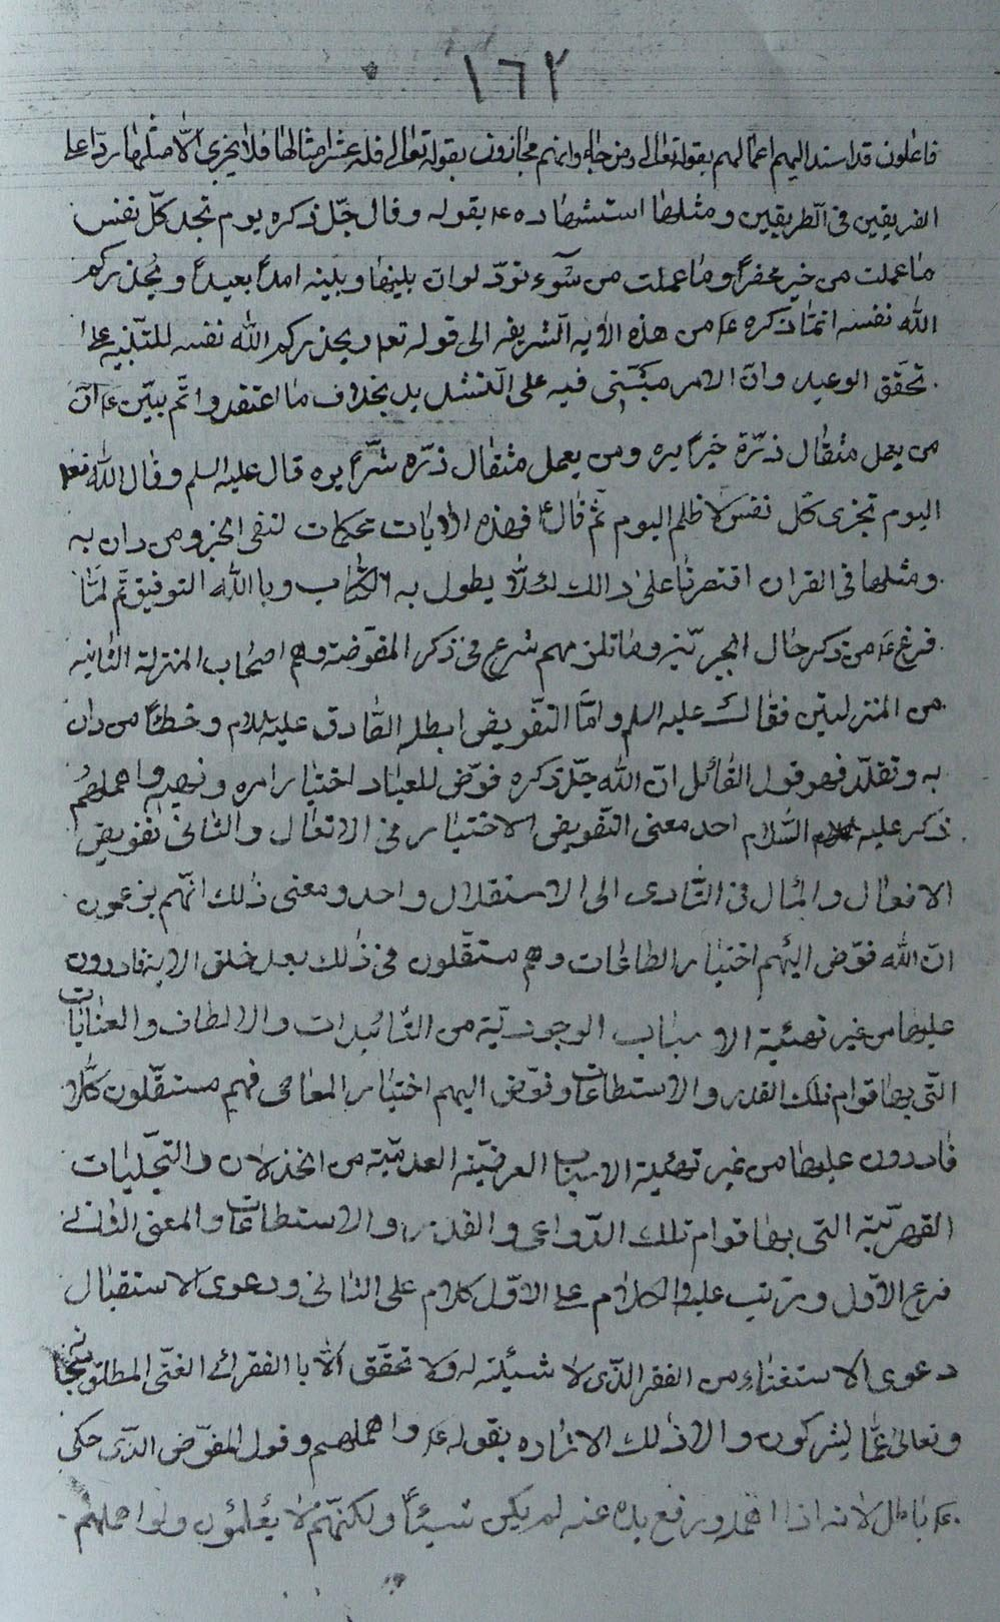 ١٦٢
فاعلون قد اسند اليهم اعمالهم بقوله تعالى ومن جاء وانهم مجازون بقوله تعالى فله عشر امثالها فلا يجزى الّا مثلها ردّا على
الفريقين فى الطريقين ومثلها استشهاده ع بقوله وقال جلّ ذكره يوم تجد كلّ نفس
ما عملت من خير محضراً وما عملت من سوٓء تودّ لو انّ بينها وبينه امداً بعيداً ويحذركم
الله نفسه انّما ذكره ع من هذه الاية الشريفه الى قوله تعا ويحذركم الله نفسه للتنبيه على
تحقق الوعيد وانّ الامر مبتنى فيه على التشديد بخلاف ما اعتقدوا ثّم بيّن ع انّ
من يعمل مثقال ذرّة خيراً يره ومن يعمل مثقال ذرّه شرّاً يره قال عليه السلم وقال الله تعا
اليوم تجزى كل نفس لا ظلم اليوم ثم قال ع فهذه الايات محكمات لنفى الجبر ومن دان به
ومثلها فى القران اقتصرنا على ذالك لئلّا يطول به الكتاب وبا الله التوفيق ثّم لمّا
فرغ ع من ذكر حال المجبرّية ومقاتلهم شرع فى ذكر المفوّضة وهم اصحاب المنزلة الثانيه
من المنزلتين فقال عليه السلم وامّا التفويض ابطله الصّادق عليه سلام وخطّأ من دان
به وتقلّد فهو قول القائل انّ الله جلّ ذكره فوّض للعباد اختيار امره ونهيه واهملهم
ذكر عليه السّلام احد معنى التفويض الاختيار فى الافعال والثانى تفويض
الافعال والمأل فى التأدى الى الاستقلال واحد ومعنى ذلك انّهم يزعمون
انّ الله فوّض اليهم اختيار الطاعات وهم مستقّلون فى ذلك بعد خلق الاية قادرون
عليها من غير تهيئة الاسباب الوجوديّة من التّأئيدات والالطاف والعنايات
التّى بها قوام تلك القدر والاستطاعات وفوّض اليهم اختيار المعاصى فهم مستقّلون كلّا
قادرون عليها من غير تهيئة الاسباب العرضيّة العدميّة من الخذلان والتجّليات
القهريّة التى بها قوام تلك الدّواعى والقدر والاستطاعات والمعنى الثانى
فرع الاوّل وترتيب عليه والكلام على الاوّل كلام على الثانى ودعوى الاستقبال
دعوى الاستغناء من الفقر الذّى لا شيئية له ولا تحقّق الّا با الفقر الى الغنّى المطلق سبحانه
وتعالى عمّا يشركون والا ذلك الاشاره بقوله ع واهملهم وقول المفوّض الذّى حكى
ع باطل لانه اذا اهمله ورفع يده عنه لم يكن شيئاً ولكنّهم لا يعلمون ولو اهملهم